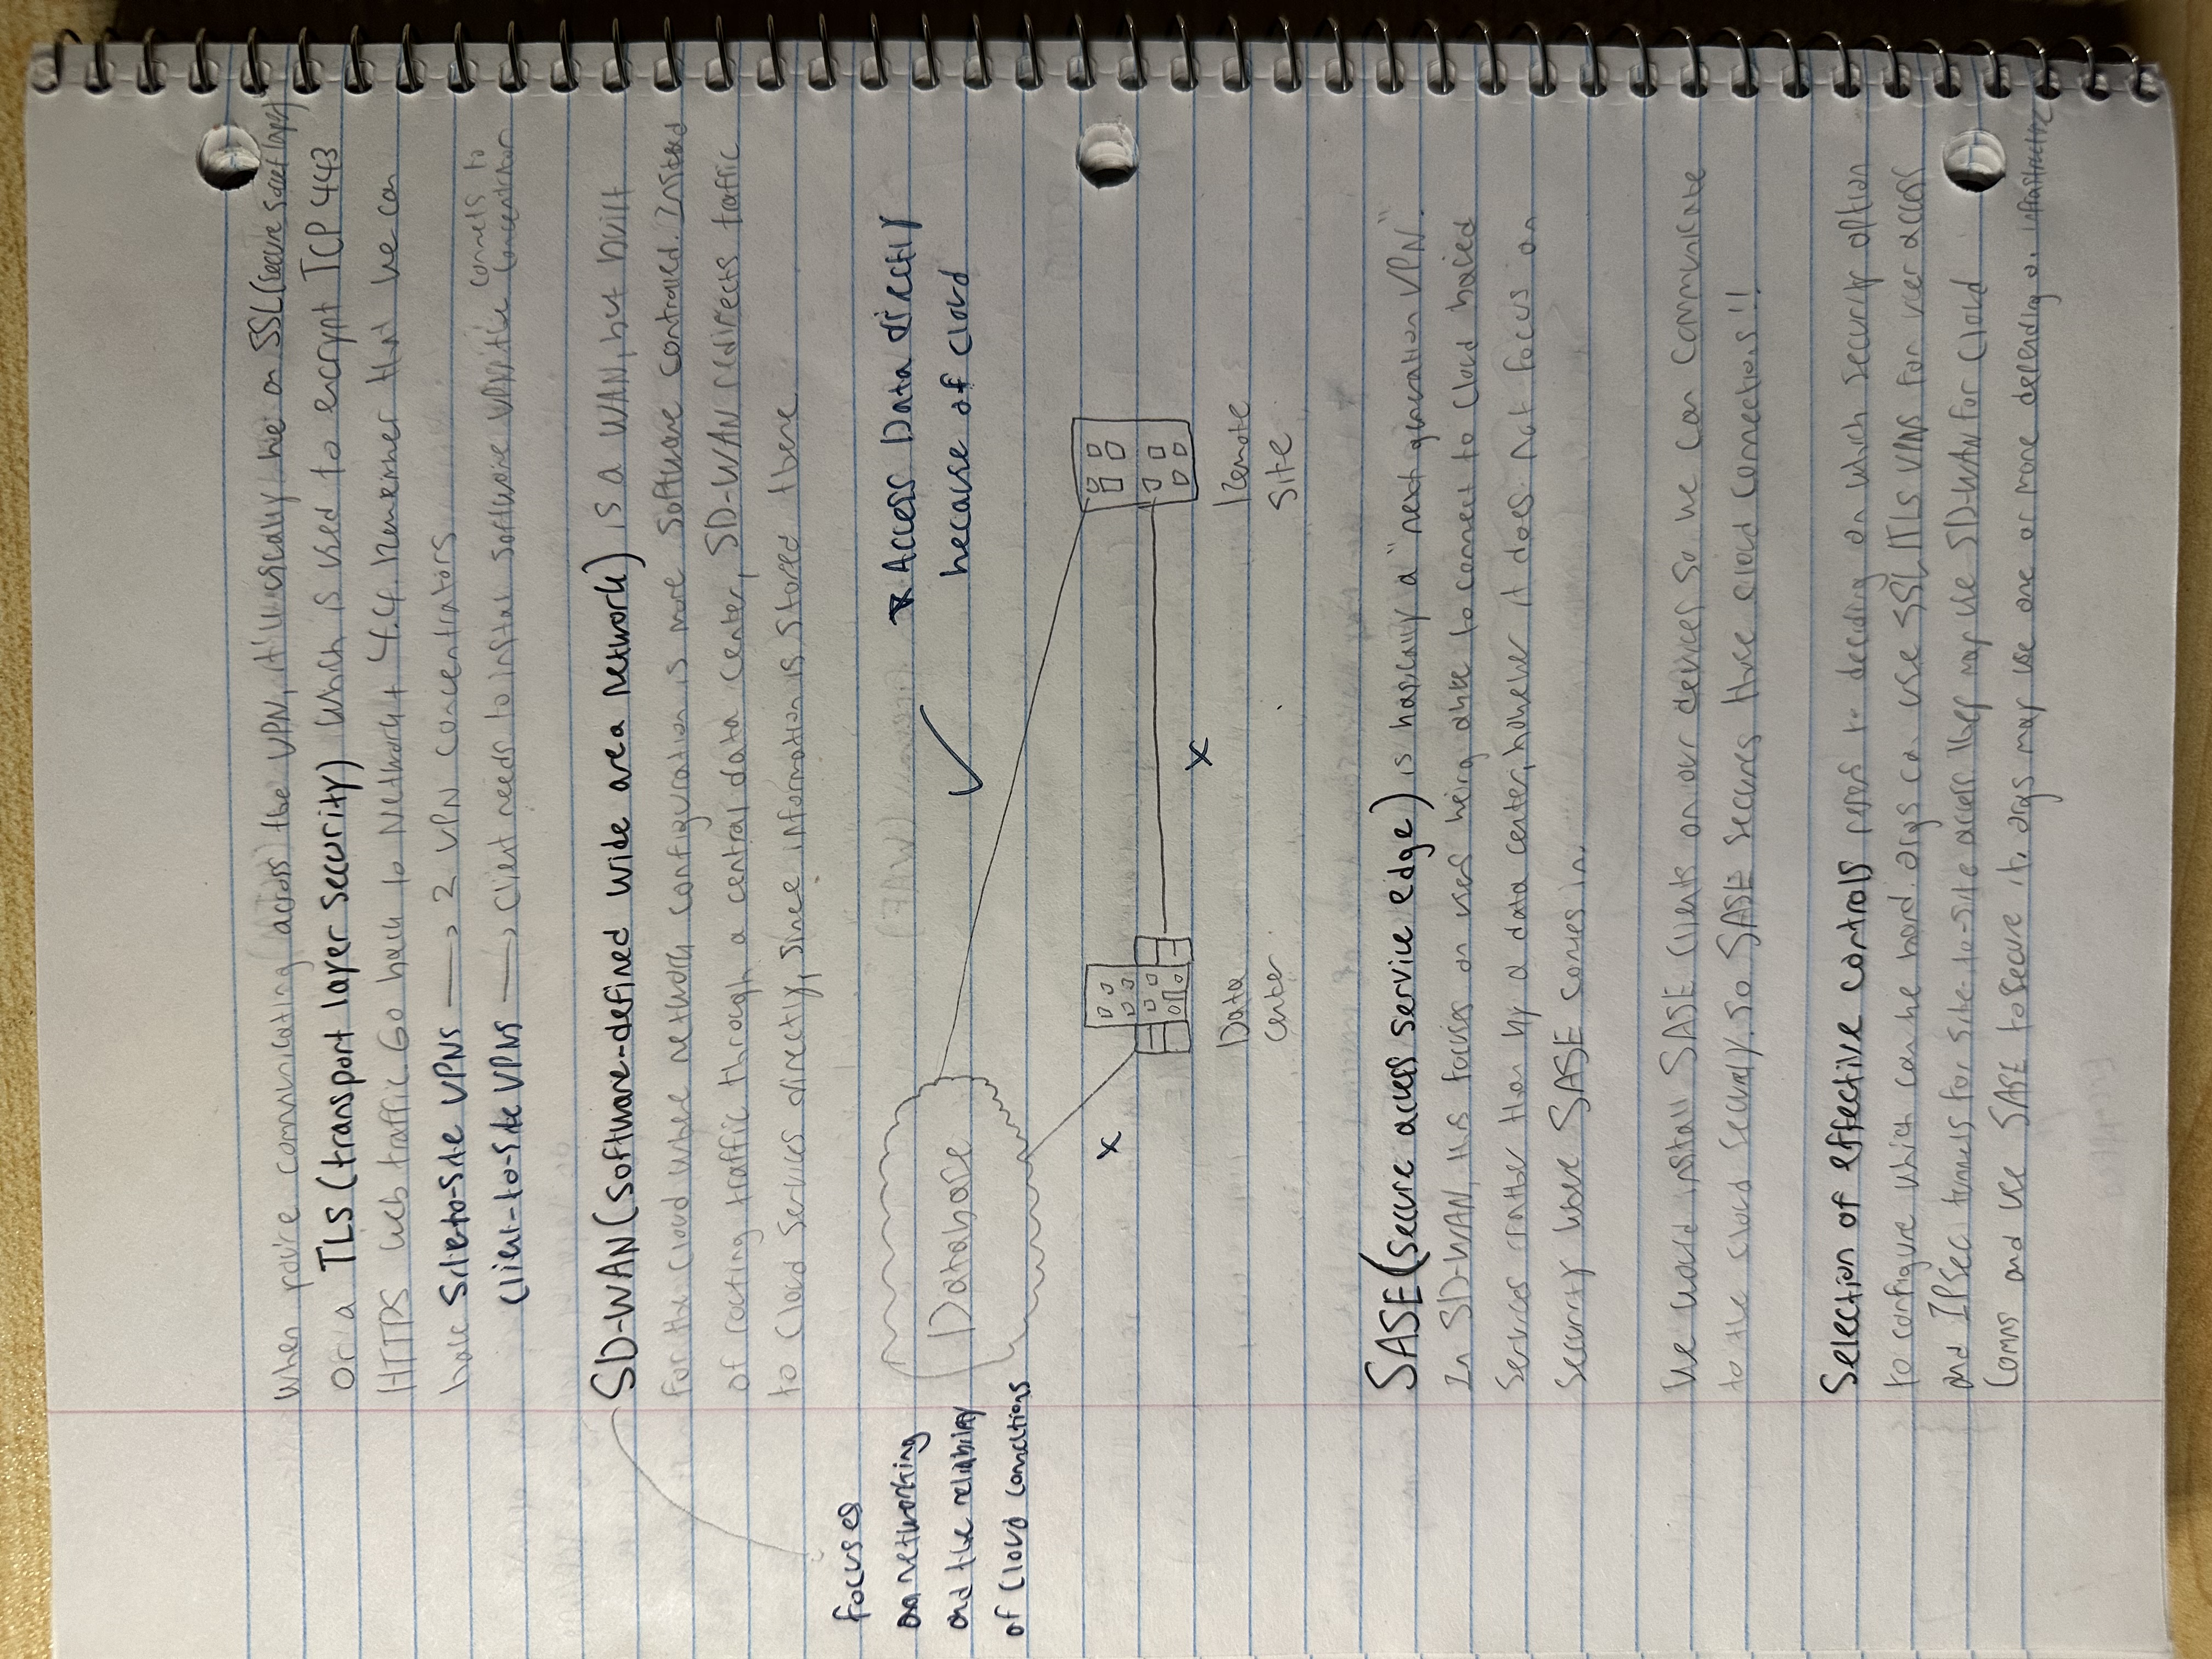 When you're communicating across the VPN, it'll usually be on SSL (secure socket layer)
or a TLS (transport layer security) which is used to encrypt TCP 443
HTTPS web traffic. Go back to Network+ 4.4. Remember that we can
have Site-to-Site VPNs → 2 VPN concentrators
Client-to-Site VPNs → Client needs to install software VPN, the connects to concentrator
SD-WAN (software-defined wide area network) is a WAN, but built
for the cloud where network configuration is more software controlled. Instead
of routing traffic through a central data center, SD-WAN redirects traffic
to cloud services directly, since information is stored there
focuses
on networking
and the reliability
of cloud connections
Database
✓
* Access Data directly
because of cloud
x
x
Data
center
Remote
Site
SASE (secure access service edge) is basically a "next generation VPN".
In SD-WAN, this focuses on users being able to connect to cloud based
services rather than by a data center, however it does not focus on
security where SASE comes in.
We would install SASE clients on our devices so we can communicate
to the cloud securely. So SASE secures those cloud connections!!
Selection of effective controls refers to deciding on which security option
to configure which can be hard. orgs can use SSL/TLS VPNs for user access
and IPSec tunnels for site-to-site access. They may use SD-WAN for cloud
comms and use SASE to secure it. orgs may use one or more depending on infrastructure